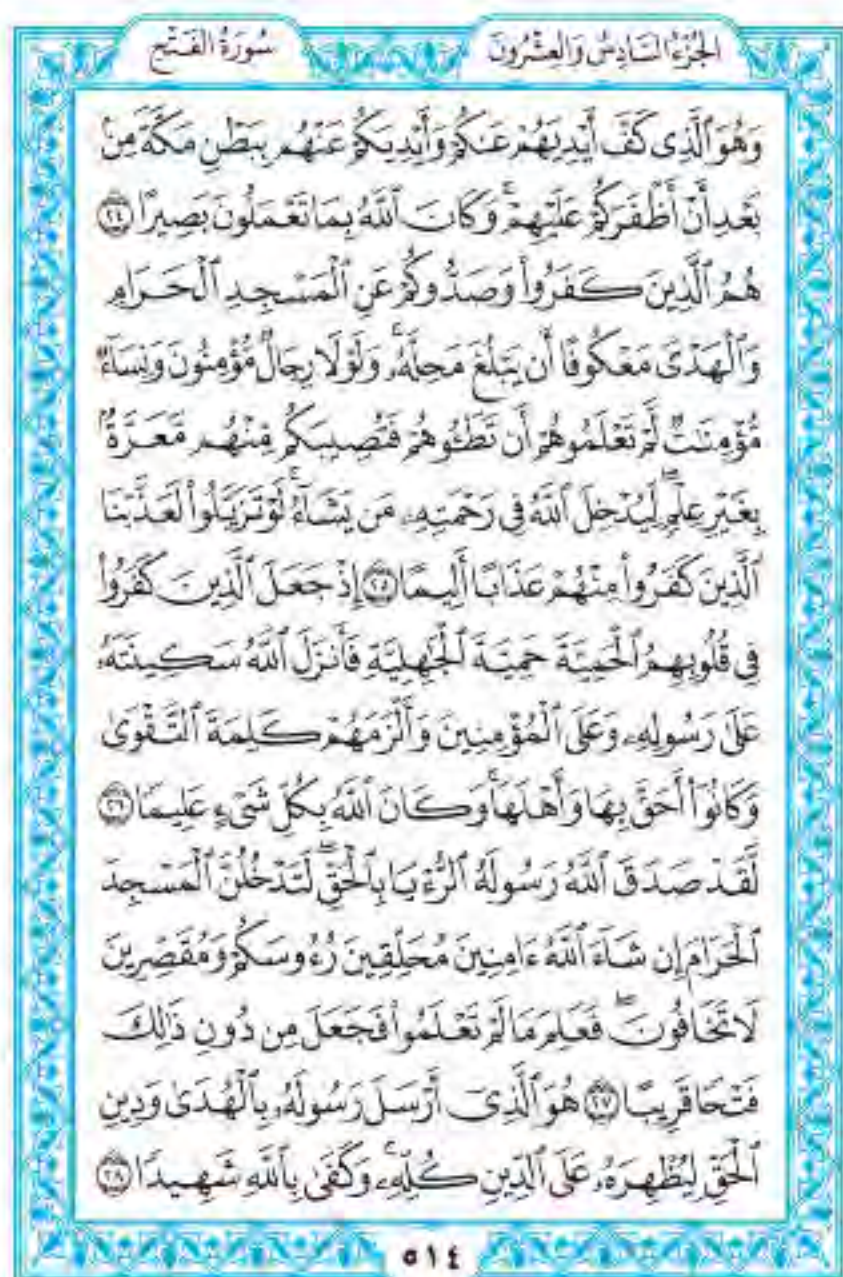 الجُزْءُ السَّادِسُ وَالعِشْرُونَ سُورَةُ الفَتْحِ
وَهُوَ ٱلَّذِى كَفَّ أَيْدِيَهُمْ عَنكُمْ وَأَيْدِيَكُمْ عَنْهُم بِبَطْنِ مَكَّةَ مِنۢ
بَعْدِ أَنْ أَظْفَرَكُمْ عَلَيْهِمْ ۚ وَكَانَ ٱللَّهُ بِمَا تَعْمَلُونَ بَصِيرًا ٢٤
هُمُ ٱلَّذِينَ كَفَرُوا۟ وَصَدُّوكُمْ عَنِ ٱلْمَسْجِدِ ٱلْحَرَامِ
وَٱلْهَدْىَ مَعْكُوفًا أَن يَبْلُغَ مَحِلَّهُۥ ۚ وَلَوْلَا رِجَالٌ مُّؤْمِنُونَ وَنِسَآءٌ
مُّؤْمِنَـٰتٌ لَّمْ تَعْلَمُوهُمْ أَن تَطَـُٔوهُمْ فَتُصِيبَكُم مِّنْهُم مَّعَرَّةٌۢ
بِغَيْرِ عِلْمٍ ۖ لِّيُدْخِلَ ٱللَّهُ فِى رَحْمَتِهِۦ مَن يَشَآءُ ۚ لَوْ تَزَيَّلُوا۟ لَعَذَّبْنَا
ٱلَّذِينَ كَفَرُوا۟ مِنْهُمْ عَذَابًا أَلِيمًا ٢٥ إِذْ جَعَلَ ٱلَّذِينَ كَفَرُوا۟
فِى قُلُوبِهِمُ ٱلْحَمِيَّةَ حَمِيَّةَ ٱلْجَـٰهِلِيَّةِ فَأَنزَلَ ٱللَّهُ سَكِينَتَهُۥ
عَلَىٰ رَسُولِهِۦ وَعَلَى ٱلْمُؤْمِنِينَ وَأَلْزَمَهُمْ كَلِمَةَ ٱلتَّقْوَىٰ
وَكَانُوٓا۟ أَحَقَّ بِهَا وَأَهْلَهَا ۚ وَكَانَ ٱللَّهُ بِكُلِّ شَىْءٍ عَلِيمًا ٢٦
لَّقَدْ صَدَقَ ٱللَّهُ رَسُولَهُ ٱلرُّءْيَا بِٱلْحَقِّ ۖ لَتَدْخُلُنَّ ٱلْمَسْجِدَ
ٱلْحَرَامَ إِن شَآءَ ٱللَّهُ ءَامِنِينَ مُحَلِّقِينَ رُءُوسَكُمْ وَمُقَصِّرِينَ
لَا تَخَافُونَ ۖ فَعَلِمَ مَا لَمْ تَعْلَمُوا۟ فَجَعَلَ مِن دُونِ ذَٰلِكَ
فَتْحًا قَرِيبًا ٢٧ هُوَ ٱلَّذِىٓ أَرْسَلَ رَسُولَهُۥ بِٱلْهُدَىٰ وَدِينِ
ٱلْحَقِّ لِيُظْهِرَهُۥ عَلَى ٱلدِّينِ كُلِّهِۦ ۚ وَكَفَىٰ بِٱللَّهِ شَهِيدًا ٢٨
٥١٤